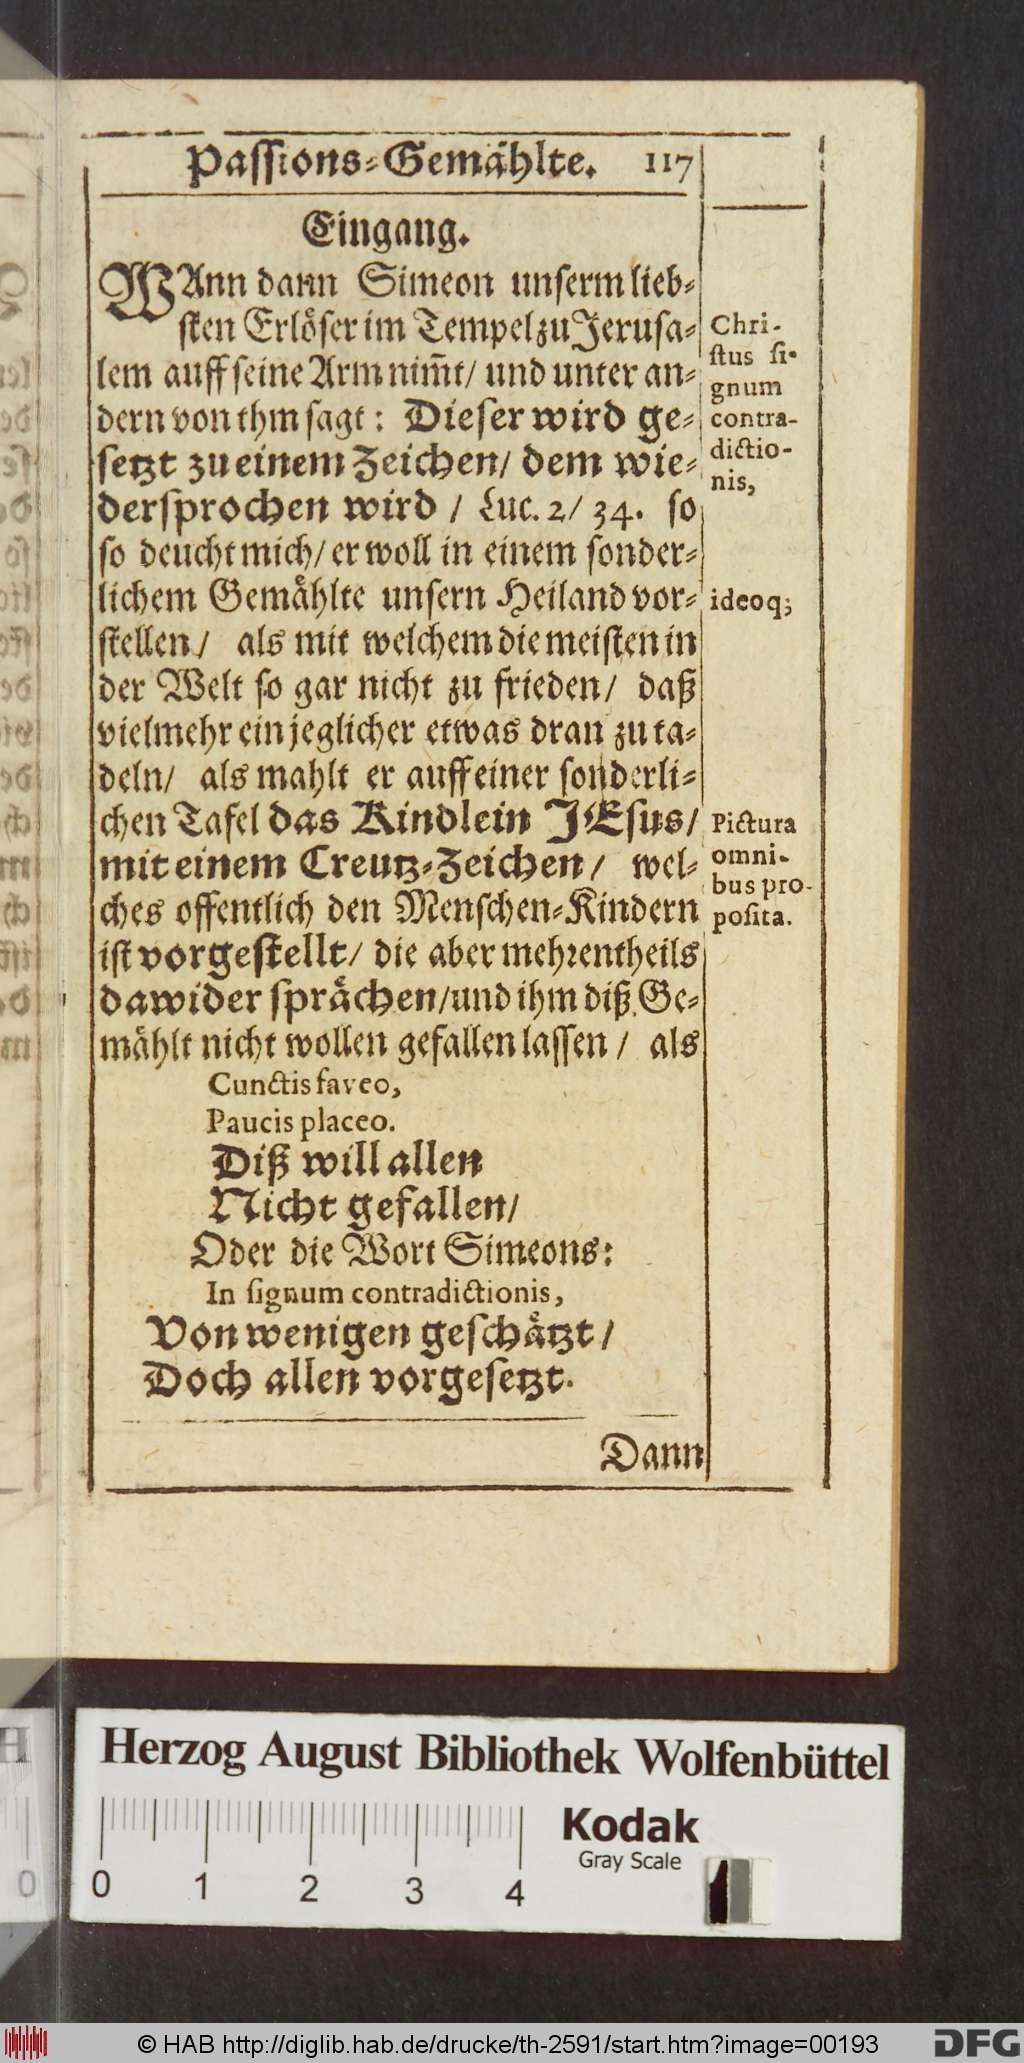 Passions-Gemählte. 117
Eingang.
WAnn dann Simeon unserm lieb-
sten Erlöser im Tempel zu Jerusa-
lem auff seine Arm nim̃t/ und unter an-
dern von ihm sagt: Dieser wird ge-
setzt zu einem Zeichen/ dem wie-
dersprochen wird / Luc. 2/ 34. so
so deucht mich/ er woll in einem sonder-
lichem Gemählte unsern Heiland vor-
stellen/ als mit welchem die meisten in
der Welt so gar nicht zu frieden/ daß
vielmehr ein jeglicher etwas dran zu ta-
deln/ als mahlt er auff einer sonderli-
chen Tafel das Kindlein JEsus/
mit einem Creutz-Zeichen/ wel-
ches offentlich den Menschen-Kindern
ist vorgestellt/ die aber mehrentheils
dawider sprächen/und ihm diß Ge-
mählt nicht wollen gefallen lassen / als
Cunctis faveo,
Paucis placeo.
Diß will allen
Nicht gefallen/
Oder die Wort Simeons:
In signum contradictionis,
Von wenigen geschätzt /
Doch allen vorgesetzt.
Dann
Chri-
stus si-
gnum
contra-
dictio-
nis,
ideoq;
Pictura
omni-
bus pro-
posita.
Herzog August Bibliothek Wolfenbüttel
Kodak
Gray Scale
0 1 2 3 4
© HAB http://diglib.hab.de/drucke/th-2591/start.htm?image=00193
DFG